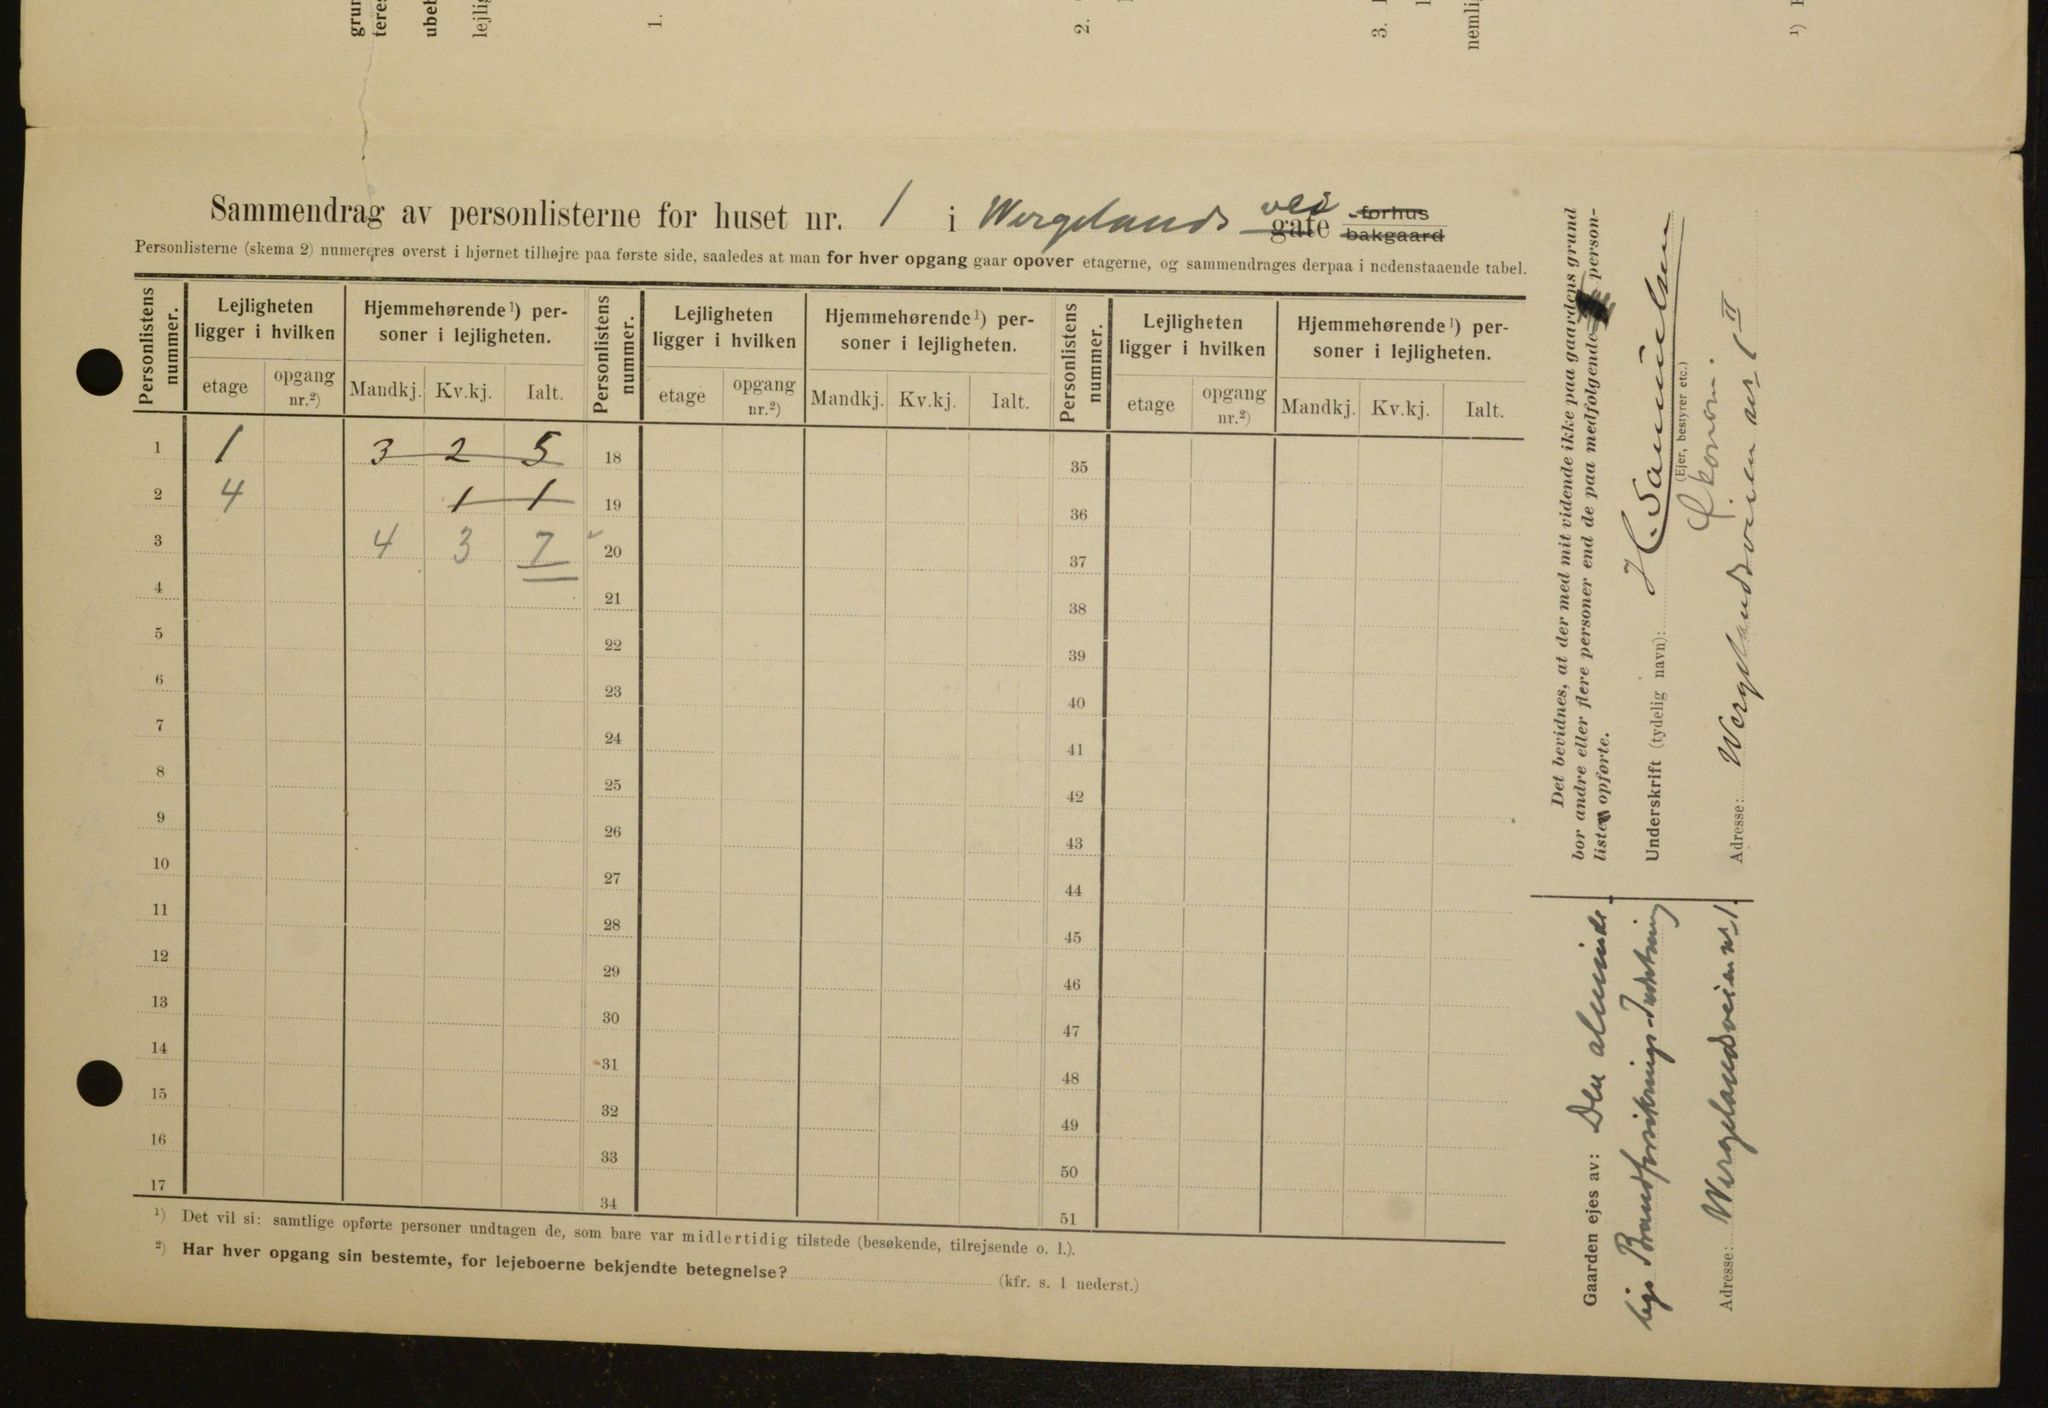 grun
teres
ubeb
lejli
1.
2.
3.
nemlig
1)
Sammendrag av personlisterne for huset nr. 1 i Wergelands vei gate forhus bakgaard
Personlisterne (skema 2) numereres øverst i hjørnet tilhøjre paa første side, saaledes at man for hver opgang gaar opover etagerne, og sammendrages derpaa i nedenstaaende tabel.
Personlistens nummer. Lejligheten ligger i hvilken Hjemmehørende 1) personer i lejligheten. Personlistens nummer. Lejligheten ligger i hvilken Hjemmehørende 1) personer i lejligheten. Personlistens nummer. Lejligheten ligger i hvilken Hjemmehørende 1) personer i lejligheten.
etage opgang nr.2) Mandkj. Kv.kj. Ialt. etage opgang nr.2) Mandkj. Kv.kj. Ialt. etage opgang nr.2) Mandkj. Kv.kj. Ialt.
1 1 3 2 5 18 35
2 4 1 1 19 36
3 4 3 7 20 37
4 21 38
5 22 39
6 23 40
7 24 41
8 25 42
9 26 43
10 27 44
11 28 45
12 29 46
13 30 47
14 31 48
15 32 49
16 33 50
17 34 51
1) Det vil si: samtlige opførte personer undtagen de, som bare var midlertidig tilstede (besøkende, tilrejsende o. l.).
2) Har hver opgang sin bestemte, for lejeboerne bekjendte betegnelse? (kfr. s. 1 nederst.)
Det bevidnes, at der med mit vidende ikke paa gaardens grund
bor andre eller flere personer end de paa medfølgende person-
lister opførte.
Underskrift (tydelig navn): H. Samuelsen
(Ejer, bestyrer etc.)
Økonom.
Adresse: Wergelandsveien nr 1 II
Gaarden ejes av: Den alminde-
lige Brandforsikrings-Indretning
Adresse: Wergelandsveien nr 1.